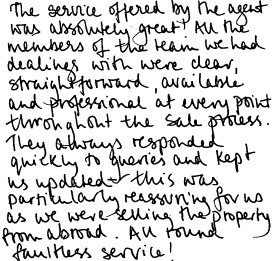 The service offered by the agent
was absolutely great! All the
members of the team we had
dealings with were clear,
straightforward, available
and professional at every point
throughout the sale process.
They always responded
quickly to queries and kept
us updated - this was
particularly reassuring for us
as we were selling the property
from abroad. All round
faultless service!